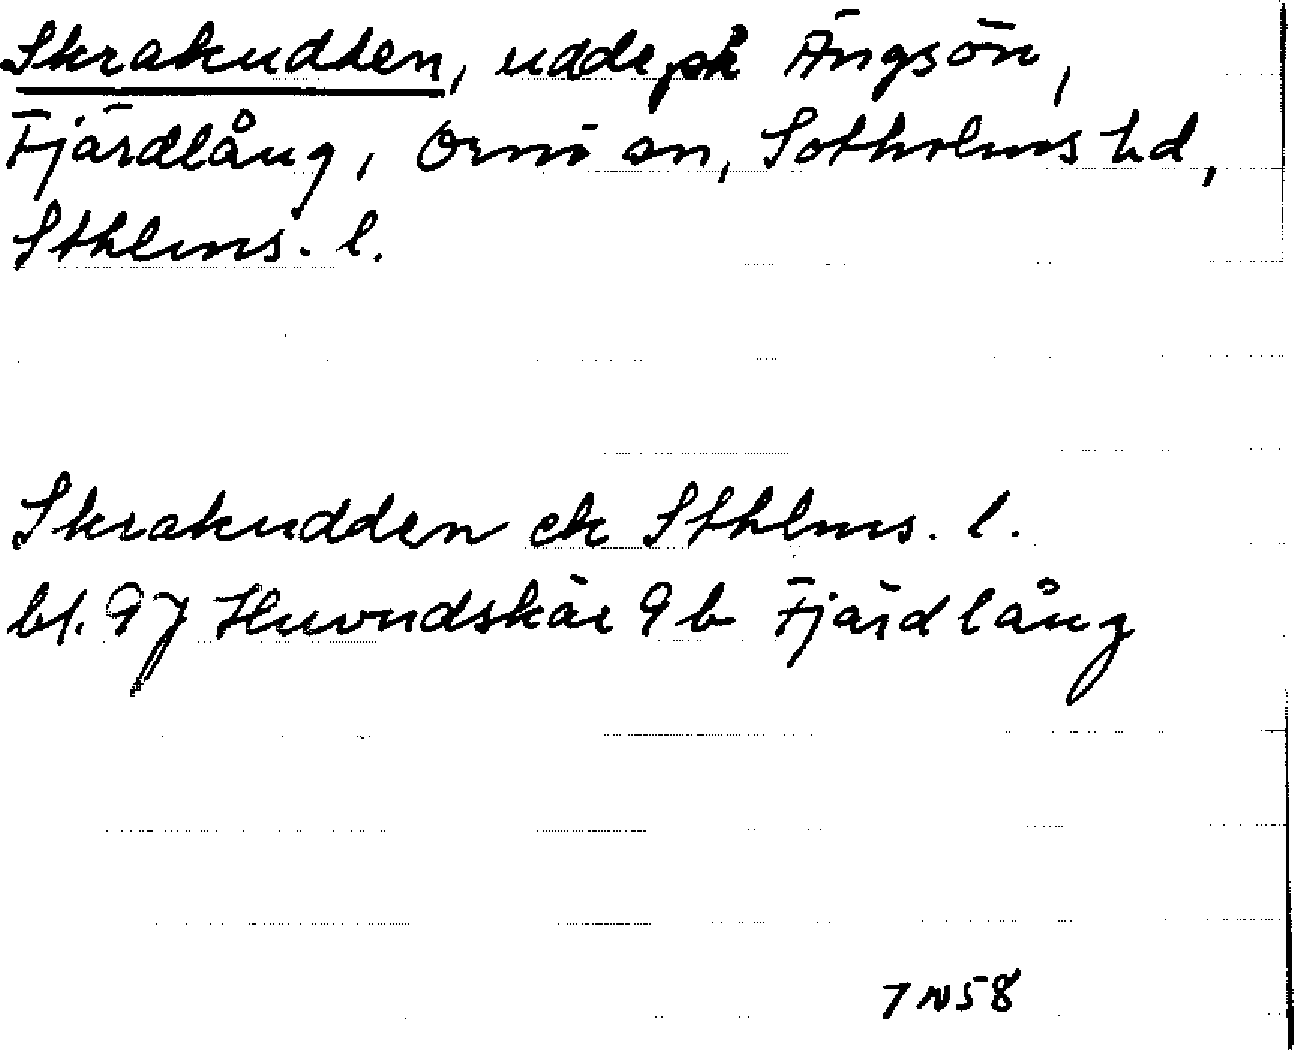 Skrakudden, udde på Ängsön,
Fjärdlång, Ornö sn, Sotholms hd,
Sthlms. l.
Skrakudden ek Sthlms. l.
bl. 97 Huvudskär 9 b Fjärdlång
7 N 58